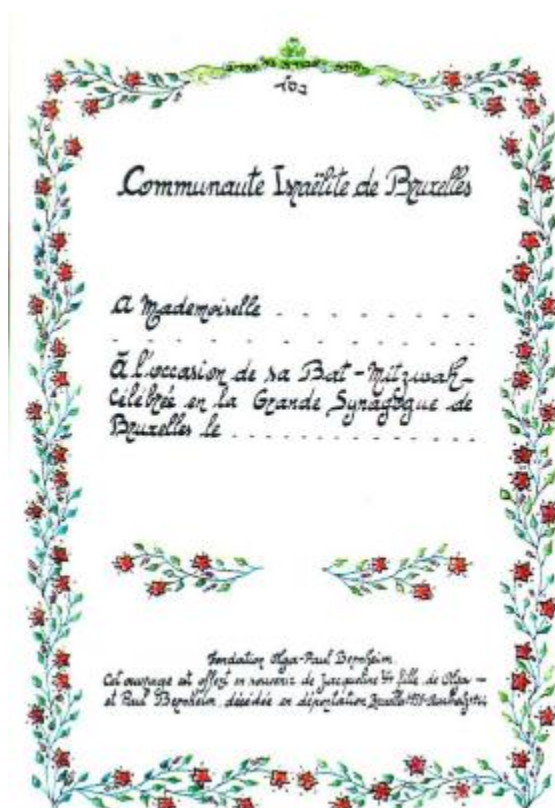 Communaute Israëlite de Bruxelles
A Mademoiselle . . . . . . . .
. . . . . . . . . . . . . .
À l'occasion de sa Bat-Mitzwah-
Célébrée en la Grande Synagogue de
Bruxelles le . . . . . . . . . .
Fondation Olga-Paul Bernheim.
Cet ouvrage est offert en souvenir de Jacqueline fille de Olga —
et Paul Bernheim, décédée en déportation